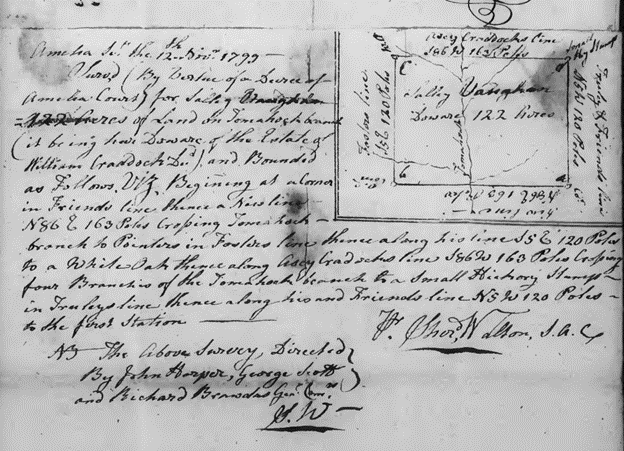 Amelia Sct. the 12th Novr. 1799
Survd. (By Vertue of a Decree of
Amelia Court) for Salley Vaughan
122 Acres of Land on Tomahock branch
(it being hur Doware of the Estate of
William Craddock Decd.) and Bounded
as Follows, Viz, Begining at a Corner
in Friends line thence a New line
N86 E 163 Poles Crossing Tomahock
branch to Pointers in Fosters line thence along his line S5 E 120 Poles
to a White Oak thence along Asey Craddocks line S86 W 163 Poles Crossing
four Branchis of the Tomahock branch to a Small Hickory Stump
in Truleys line thence along his and Friends line N5 W 120 Poles
to the first Station
Pr. Shord. Walton, S.A.C.
NB The Above Survey, Directed
By John Harper, George Scott
and Richard Brawdas Gen. Coms.
S.W
Asey Craddocks line
S86 W 163 Poles
Small Hky Stump
W Oak
Fosters line
S5 E 120 Poles
C
Salley Vaughan
Doware 122 Acres
Tomahock
N5 W 120 Poles
Truly & Friends line
N86 E 163 Poles
New line